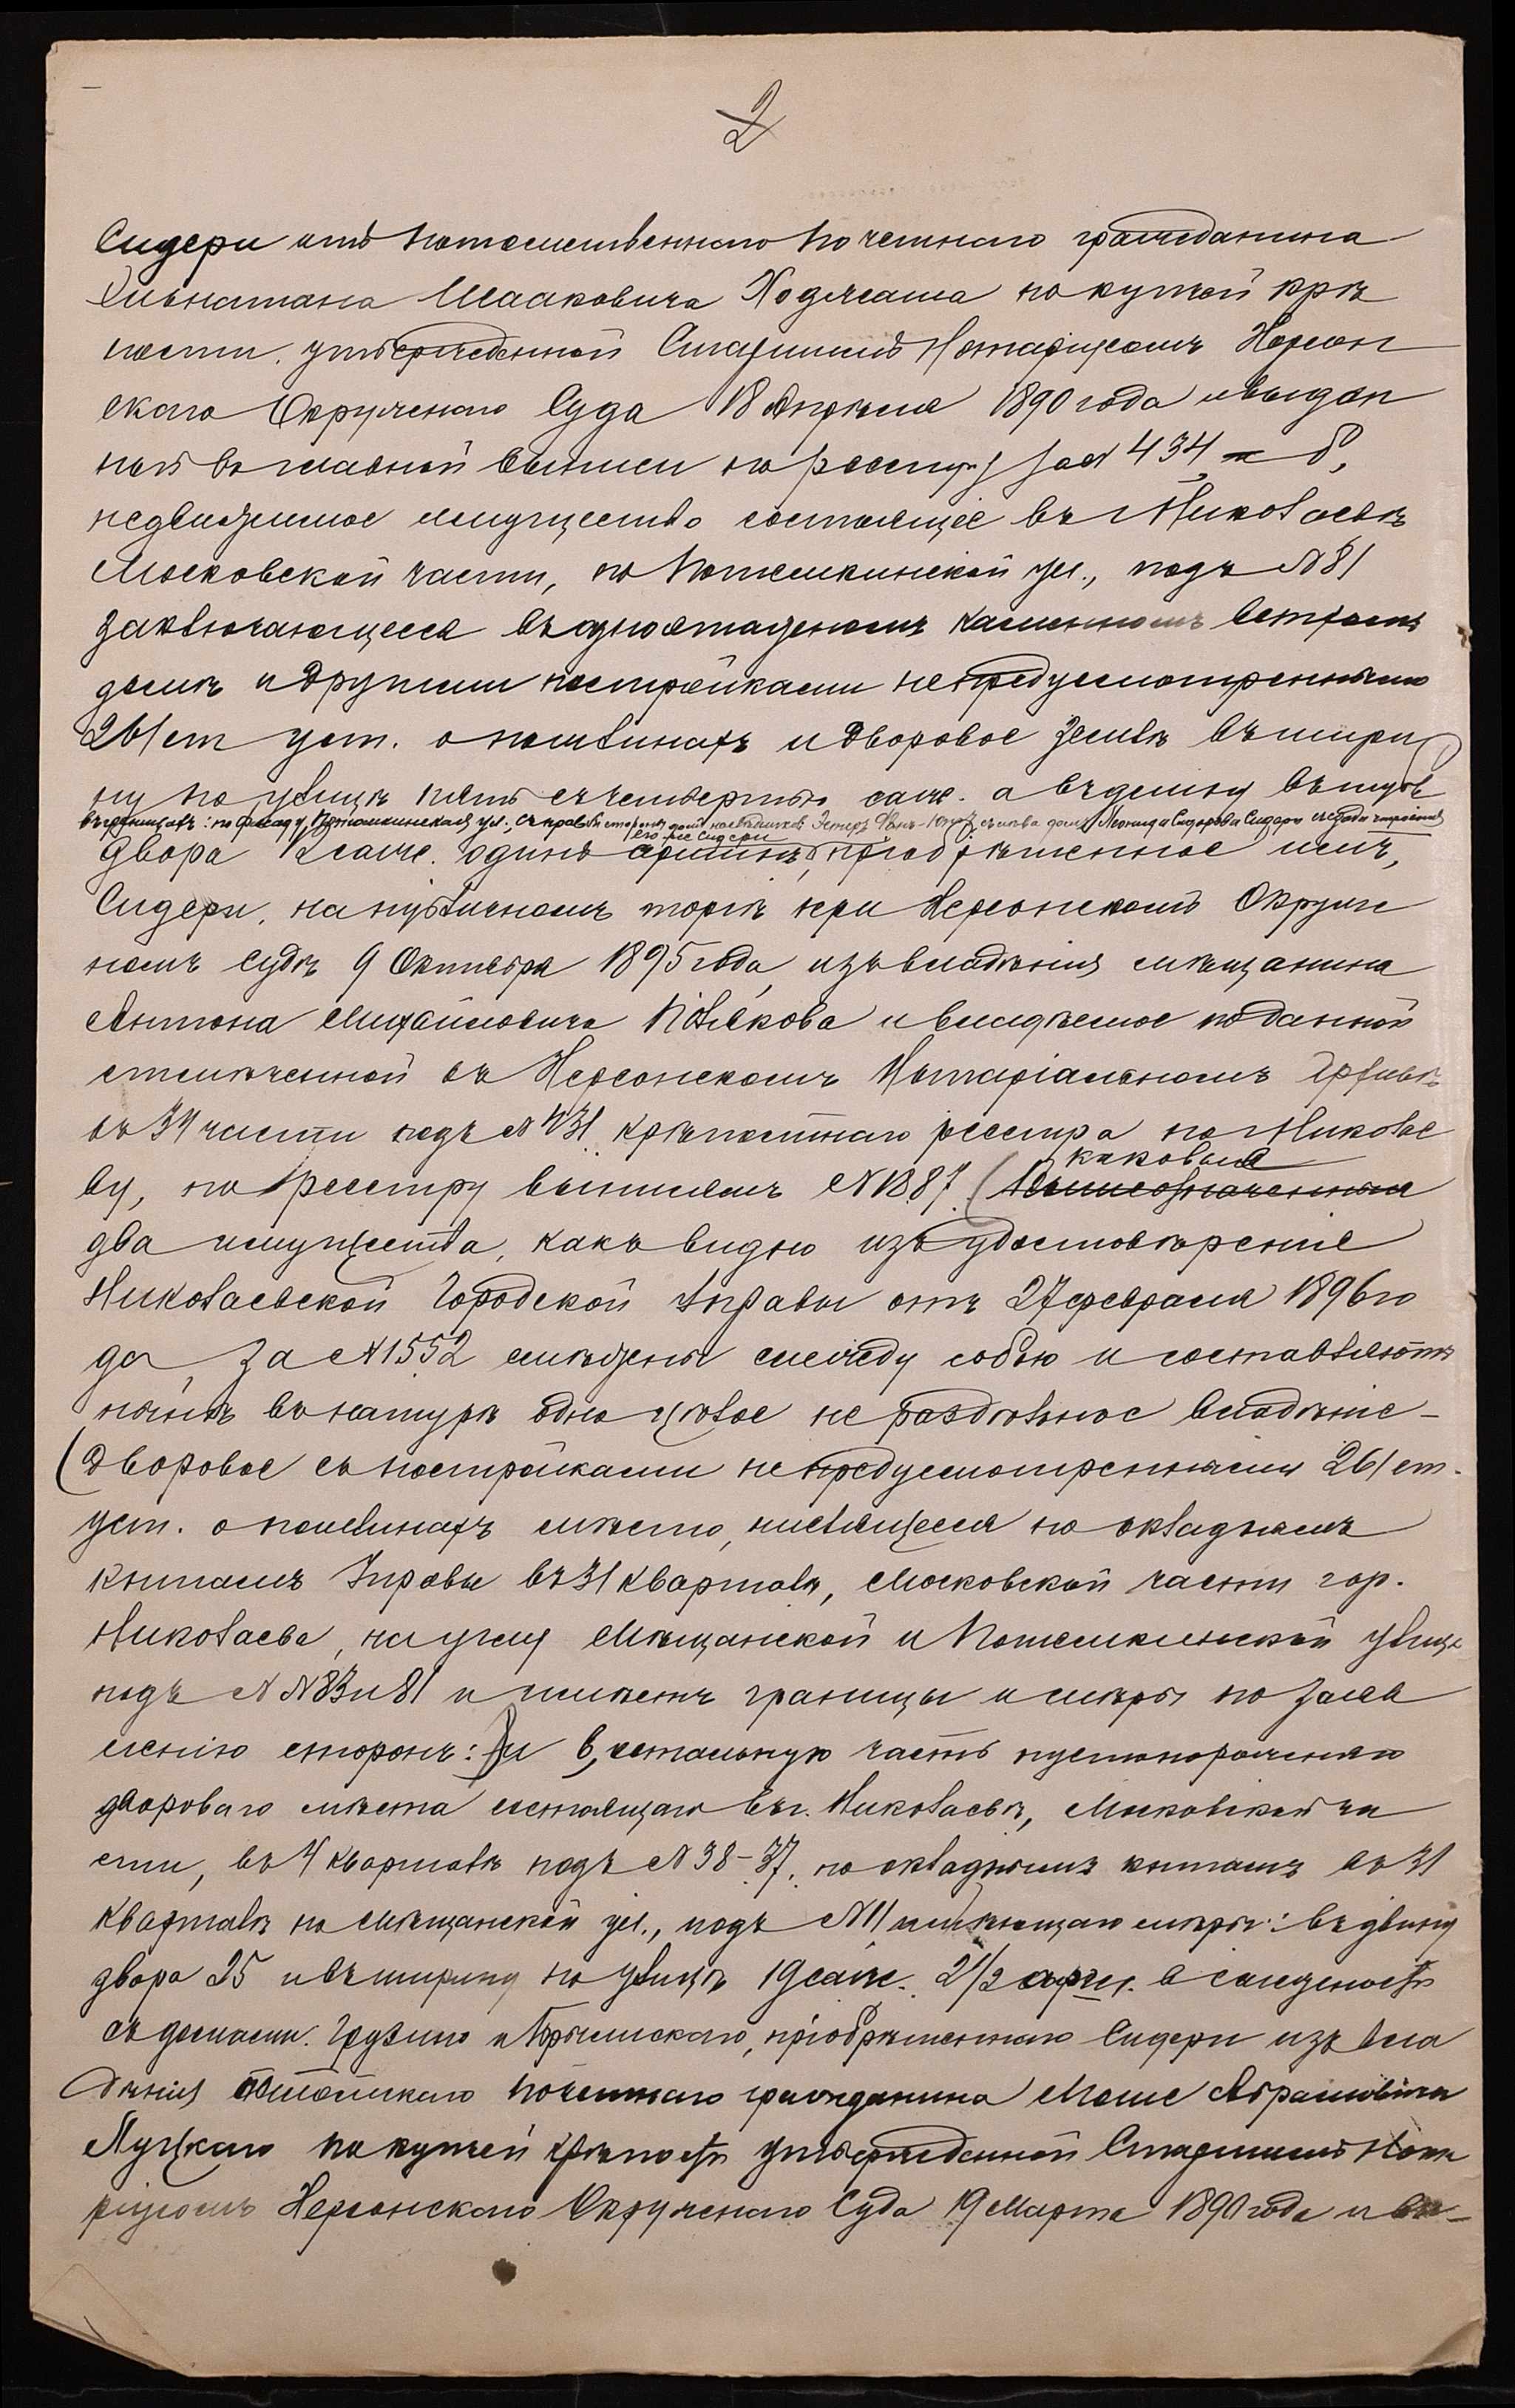 2
Сидери отъ потомственнаго почетнаго гражданина
Эльнатана Исааковича Ходжаша по купчей крѣ
пости, утвержденной Старшимъ Нотаріусомъ Херсон
скаго Окружнаго Суда 18 Апрѣля 1890 года и выдан
ной въ главной выписи по реестру за № 434, б,
недвижимое имущество состоящее въ г. Николаевѣ
Московской части, по Потемкинской ул., подъ № 81
заключающееся въ одноэтажномъ каменномъ ветхомъ
домѣ и другими постройками непредусмотренными
261 ст уст. о пошлинахъ и дворовое землѣ въ шири
ну по улицѣ пять съ четвертью саж. а въ длину въ глубь
въ границахъ: по фасаду, Потемкинская ул., съ правой стороны домъ наслѣдниковъ Эстеръ съ лѣва домъ Леонида Сидорова Сидери и сзади строенія
его же Сидери
двора 12 саж. одинъ аршинъ, пріобрѣтенное имъ,
Сидери, на публичномъ торгѣ при Херсонскомъ Окруж
номъ Судѣ 9 Октября 1895 года, изъ владѣнія мѣщанина
Антона Михайловича Полякова и владѣемое по данной
отмѣченной въ Херсонскомъ Нотаріальномъ Архивѣ
въ 34 части подъ № 431 крѣпостнаго реестра по Николае
ву, по реестру выписямъ № 1887 (каковыя Вышеозначенныя
два имущества, какъ видно изъ удостовѣреніе
Николаевской Городской Управы отъ 27 февраля 1896 го
да, за № 1552 смѣжны между собою и составляютъ
нынѣ въ натурѣ одно цѣлое не раздѣльное владѣніе –
(Дворовое съ постройками непредусмотренными 261 ст.
уст. о пошлинахъ мѣсто, числящееся по окладнымъ
книгамъ Управы въ 31 кварталѣ, Московской части гор.
Николаева, на углу Мѣщанской и Потемкинской улицъ
подъ № № 83 и 81 и имѣетъ границы и мѣры по заяв
ленію сторонъ:) и в, остальную часть пустопорожняго
двороваго мѣста состоящаго въ г. Николаевѣ, Московской ча
сти, въ 4 кварталѣ подъ № 38–37. по окладнымъ книгамъ въ 31
кварталѣ по Мѣщанской ул., подъ № 11 имѣющаго мѣры: въ длину
двора 25 и въ ширину по улицѣ 19 саж. 2 1/2 арш. в смежности
съ домами. Грузино и пріобрѣтеннаго Сидери изъ вла
дѣнія почетнаго гражданина Моше Абрамовича
Луцкаго по купчей крѣпости утвержденной Старшимъ Нота
ріусомъ Херсонскаго Окружнаго Суда 19 Марта 1890 года и вы–